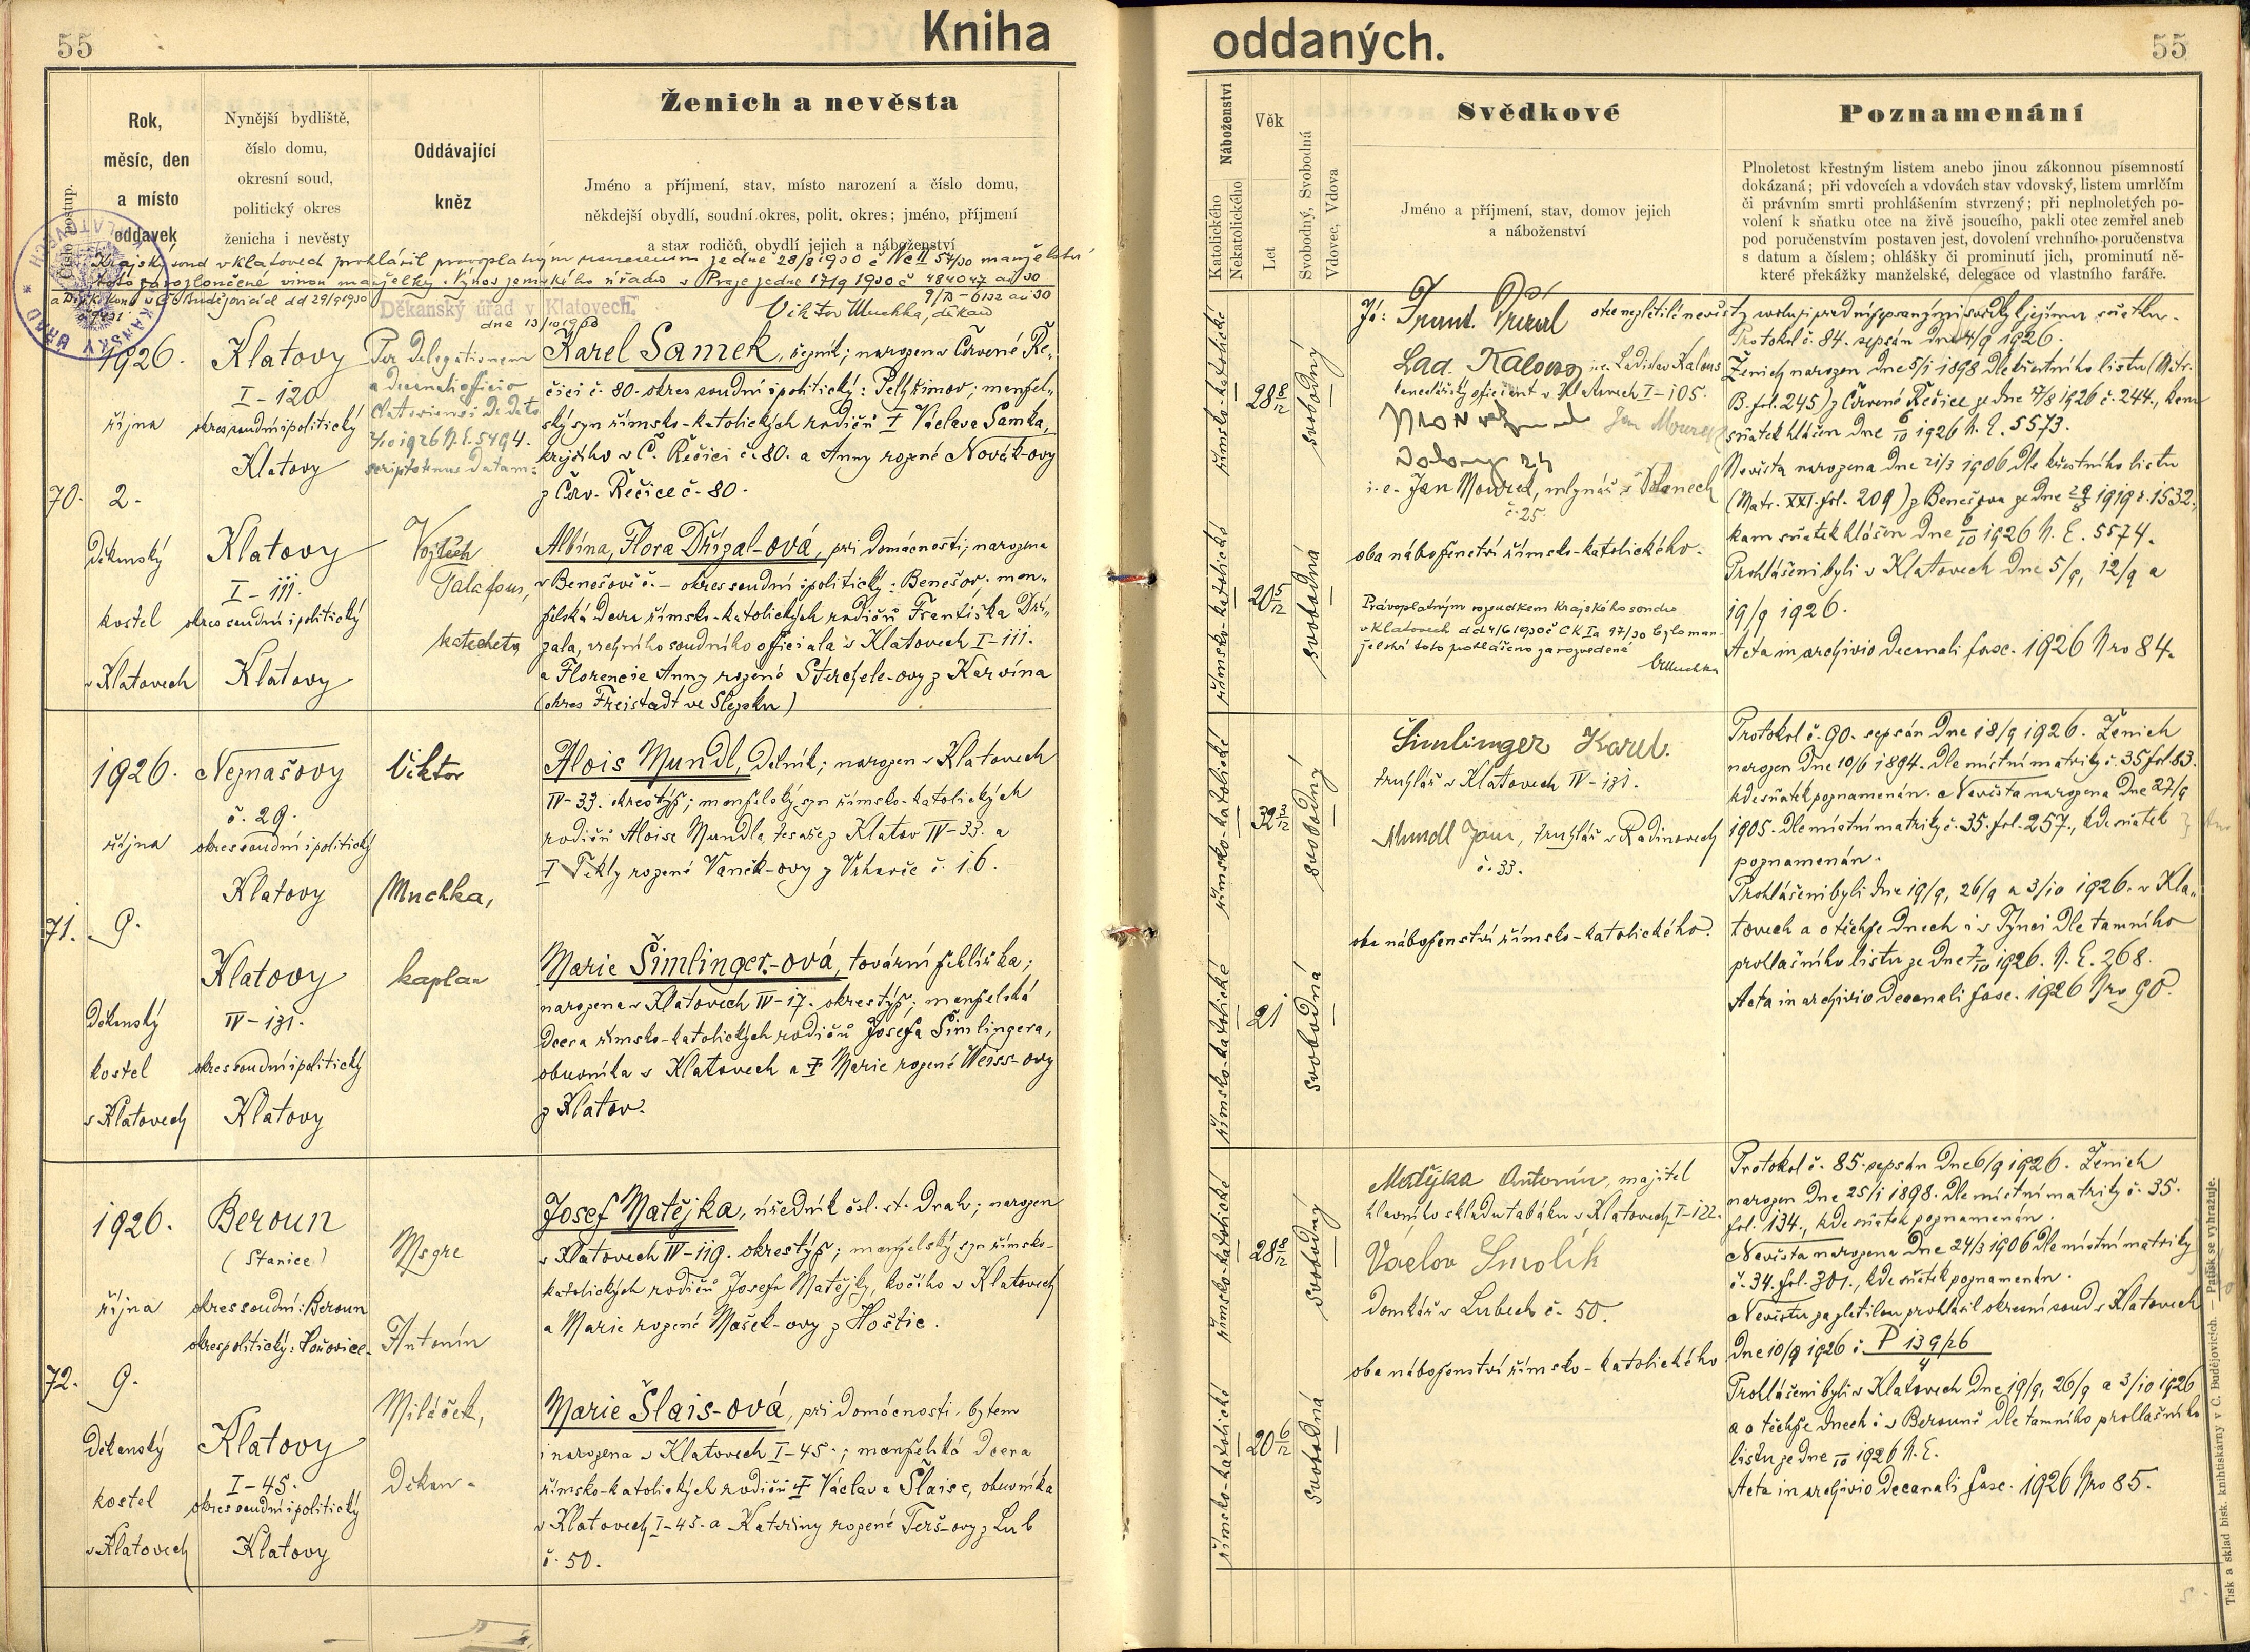 55
Kniha
oddaných.
55
Číslo postup.
Rok,
měsíc, den
a místo
oddavek
Nynější bydliště,
číslo domu,
okresní soud,
politický okres
ženicha i nevěsty
Oddávající
kněz
Ženich a nevěsta
Jméno a příjmení, stav, místo narození a číslo domu,
někdejší obydlí, soudní okres, polit. okres; jméno, příjmení
a stav rodičů, obydlí jejich a náboženství
Náboženství
Katolického
Nekatolického
Věk
Let
Svobodný, Svobodná
Vdovec, Vdova
Svědkové
Jméno a příjmení, stav, domov jejich
a náboženství
Poznamenání
Plnoletost křestným listem anebo jinou zákonnou písemností
dokázaná; při vdovcích a vdovách stav vdovský, listem umrlčím
či právním smrti prohlášením stvrzený; při neplnoletých po-
volení k sňatku otce na živě jsoucího, pakli otec zemřel aneb
pod poručenstvím postaven jest, dovolení vrchního poručenstva
s datum a číslem; ohlášky či prominutí jich, prominutí ně-
které překážky manželské, delegace od vlastního faráře.
Krajský soud v Klatovech prohlásil pravoplatným usnesením ze dne 28/8 1930 č Nc II 57/30 manželství
toto za rozloučené vinou manželky. Výnos zemského úřadu v Praze ze dne 17/9 1930 č 484047 ai 30
9/B - 6132 ai 30
Děkanský úřad v Klatovech.
dne 13/10 1930
Viktor Muchka, děkan
70.
1926.
října
2.
Děkanský
kostel
v Klatovech
Klatovy
I - 120
okres soudní i politický
Klatovy
Klatovy
I - 111.
okres soudní i politický
Klatovy
Per delegationem
a decanali officio
Clatoviensi de dato
2/10 1926 N. E. 5494.
scripto tenus datam:
Vojtěch
Talafous,
katecheta
Karel Samek, číšník; narozen v Červené Ře-
čici č. 80. okres soudní i politický: Pelhřimov; manžel-
ský syn římsko-katolických rodičů † Václava Samka,
krejčího v Č. Řečici č. 80. a Anny rozené Novák-ovy
z Červ. Řečice č. 80.
Albína, Flora Dřízal-ová, při domácnosti; narozena
v Benešově č. — okres soudní i politický: Benešov; man-
želská dcera římsko-katolických rodičů Františka Dří-
zala, vrchního soudního officiala v Klatovech I-111.
a Florencie Anny rozené Sterchele-ovy z Karvína
(okres Freistadt ve Slezsku)
římsko-katolické
28 8/12
svobodný
římsko-katolické
20 5/12
svobodná
Já: Frant. Dřízal otec nezletilé nevěsty svoluji před níže psanými svědky k jejímu sňatku.
Lad. Kalous i.e. Ladislav Kalous
kancelářský oficiant v Klatovech I-105.
Jan Mourek
i.e. Jan Mourek, mlynář v Dolanech
č. 25.
oba náboženství římsko-katolického.
Právoplatným rozsudkem Krajského soudu
v Klatovech dd 4/6 1930 č CK Ia 97/30 bylo man-
želství toto prohlášeno za rozvedené
VMuchka
Protokol č. 84. sepsán dne 4/9 1926.
Ženich narozen dne 5/1 1898 dle křestního listu (Matr.
B. fol. 245) z Červené Řečice ze dne 17/8 1926 č. 244., kam
sňatek hlášen dne 6/10 1926 N. E. 5573.
Nevěsta narozena dne 21/3 1906 dle křestního listu
(Matr. XXI. fol. 209) z Benešova ze dne 29/8 1919 č. 1532.,
kam sňatek hlášen dne 6/10 1926 N. E. 5574.
Prohlášeni byli v Klatovech dne 5/9, 12/9 a
19/9 1926.
Acta in archivio decanali fasc. 1926 Nro 84.
71.
1926.
října
9.
Děkanský
kostel
v Klatovech
Neznašovy
č. 29.
okres soudní i politický
Klatovy
Klatovy
IV - 131.
okres soudní i politický
Klatovy
Viktor
Muchka,
kaplan
Alois Mundl, dělník; narozen v Klatovech
IV-33. okres týž; manželský syn římsko-katolických
rodičů Aloise Mundla, tesaře z Klatov IV-33. a
† Tekly rozené Vaněk-ovy z Vrhavče č. 16.
Marie Šimlinger-ová, tovární žehlířka;
narozena v Klatovech IV-17. okres týž; manželská
dcera římsko-katolických rodičů Josefa Šimlingera,
obuvníka v Klatovech a † Marie rozené Weiss-ovy
z Klatov.
římsko-katolické
32 3/12
svobodný
římsko-katolické
21
svobodná
Šimlinger Karel.
truhlář v Klatovech IV-131.
Mundl Jan, truhlář v Radinovech
č. 33.
oba náboženství římsko-katolického.
Protokol č. 90. sepsán dne 18/9 1926. Ženich
narozen dne 10/6 1894. dle místní matriky č. 35 fol 83.
kde sňatek poznamenán. a Nevěsta narozena dne 27/9
1905. dle místní matriky č. 35. fol. 257., kde sňatek
poznamenán.
Prohlášeni byli dne 19/9, 26/9 a 3/10 1926. v Kla-
tovech a o těchže dnech i v Týnci dle tamního
prohlašního listu ze dne 7/10 1926. N. E. 268.
Acta in archivio decanali fasc. 1926 Nro 90.
72.
1926.
října
9.
Děkanský
kostel
v Klatovech
Beroun
(Stanice)
okres soudní: Beroun
okres politický: Hořovice.
Klatovy
I - 45.
okres soudní i politický
Klatovy
Msgre
Antonín
Miláček,
děkan.
Josef Matějka, úředník čsl. st. drah; narozen
v Klatovech IV-119. okres týž; manželský syn římsko-
katolických rodičů Josefa Matějky, kočího v Klatovech
a Marie rozené Mašek-ovy z Hoštic.
Marie Šlais-ová, při domácnosti, bytem
i narozena v Klatovech I-45.; manželská dcera
římsko-katolických rodičů † Václava Šlaise, obuvníka
v Klatovech I-45. a Kateřiny rozené Terš-ovy z Lub
č. 50.
římsko-katolické
28 8/12
svobodný
římsko-katolické
20 6/12
svobodná
Matějka Antonín, majitel
hlavního skladu tabáku v Klatovech I-122.
Václav Smolík
domkář v Lubech č. 50.
oba náboženství římsko-katolického
Protokol č. 85. sepsán dne 6/9 1926. Ženich
narozen dne 25/1 1898. dle místní matriky č. 35.
fol. 134., kde sňatek poznamenán.
Nevěsta narozena dne 24/3 1906 dle místní matriky
č. 34. fol. 301., kde sňatek poznamenán.
Nevěstu za zletilou prohlásil okresní soud v Klatovech
dne 10/9 1926 č. P 139/26
4
Prohlášeni byli v Klatovech dne 19/9, 26/9 a 3/10 1926
a o těchže dnech i v Berouně dle tamního prohlašního
listu ze dne /10 1926 N. E.
Acta in archivio decanali fasc. 1926 Nro 85.
Tisk a sklad bisk. knihtiskárny v Č. Budějovicích. — Patisk se vyhražuje.